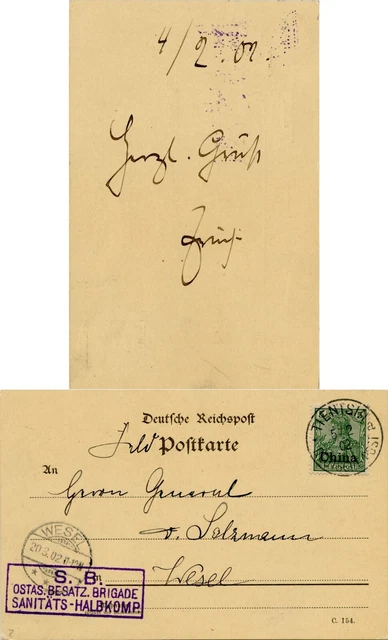 4/2.02.
Herzl. Gruß
Deutsche Reichspost
Feld Postkarte
TIENTSIN
China
An
Herrn General
v. Salzmann
WESEL
20.3.02
Wesel
S. B.
OSTAS. BESATZ. BRIGADE
SANITÄTS-HALBKOMP.
C. 154.